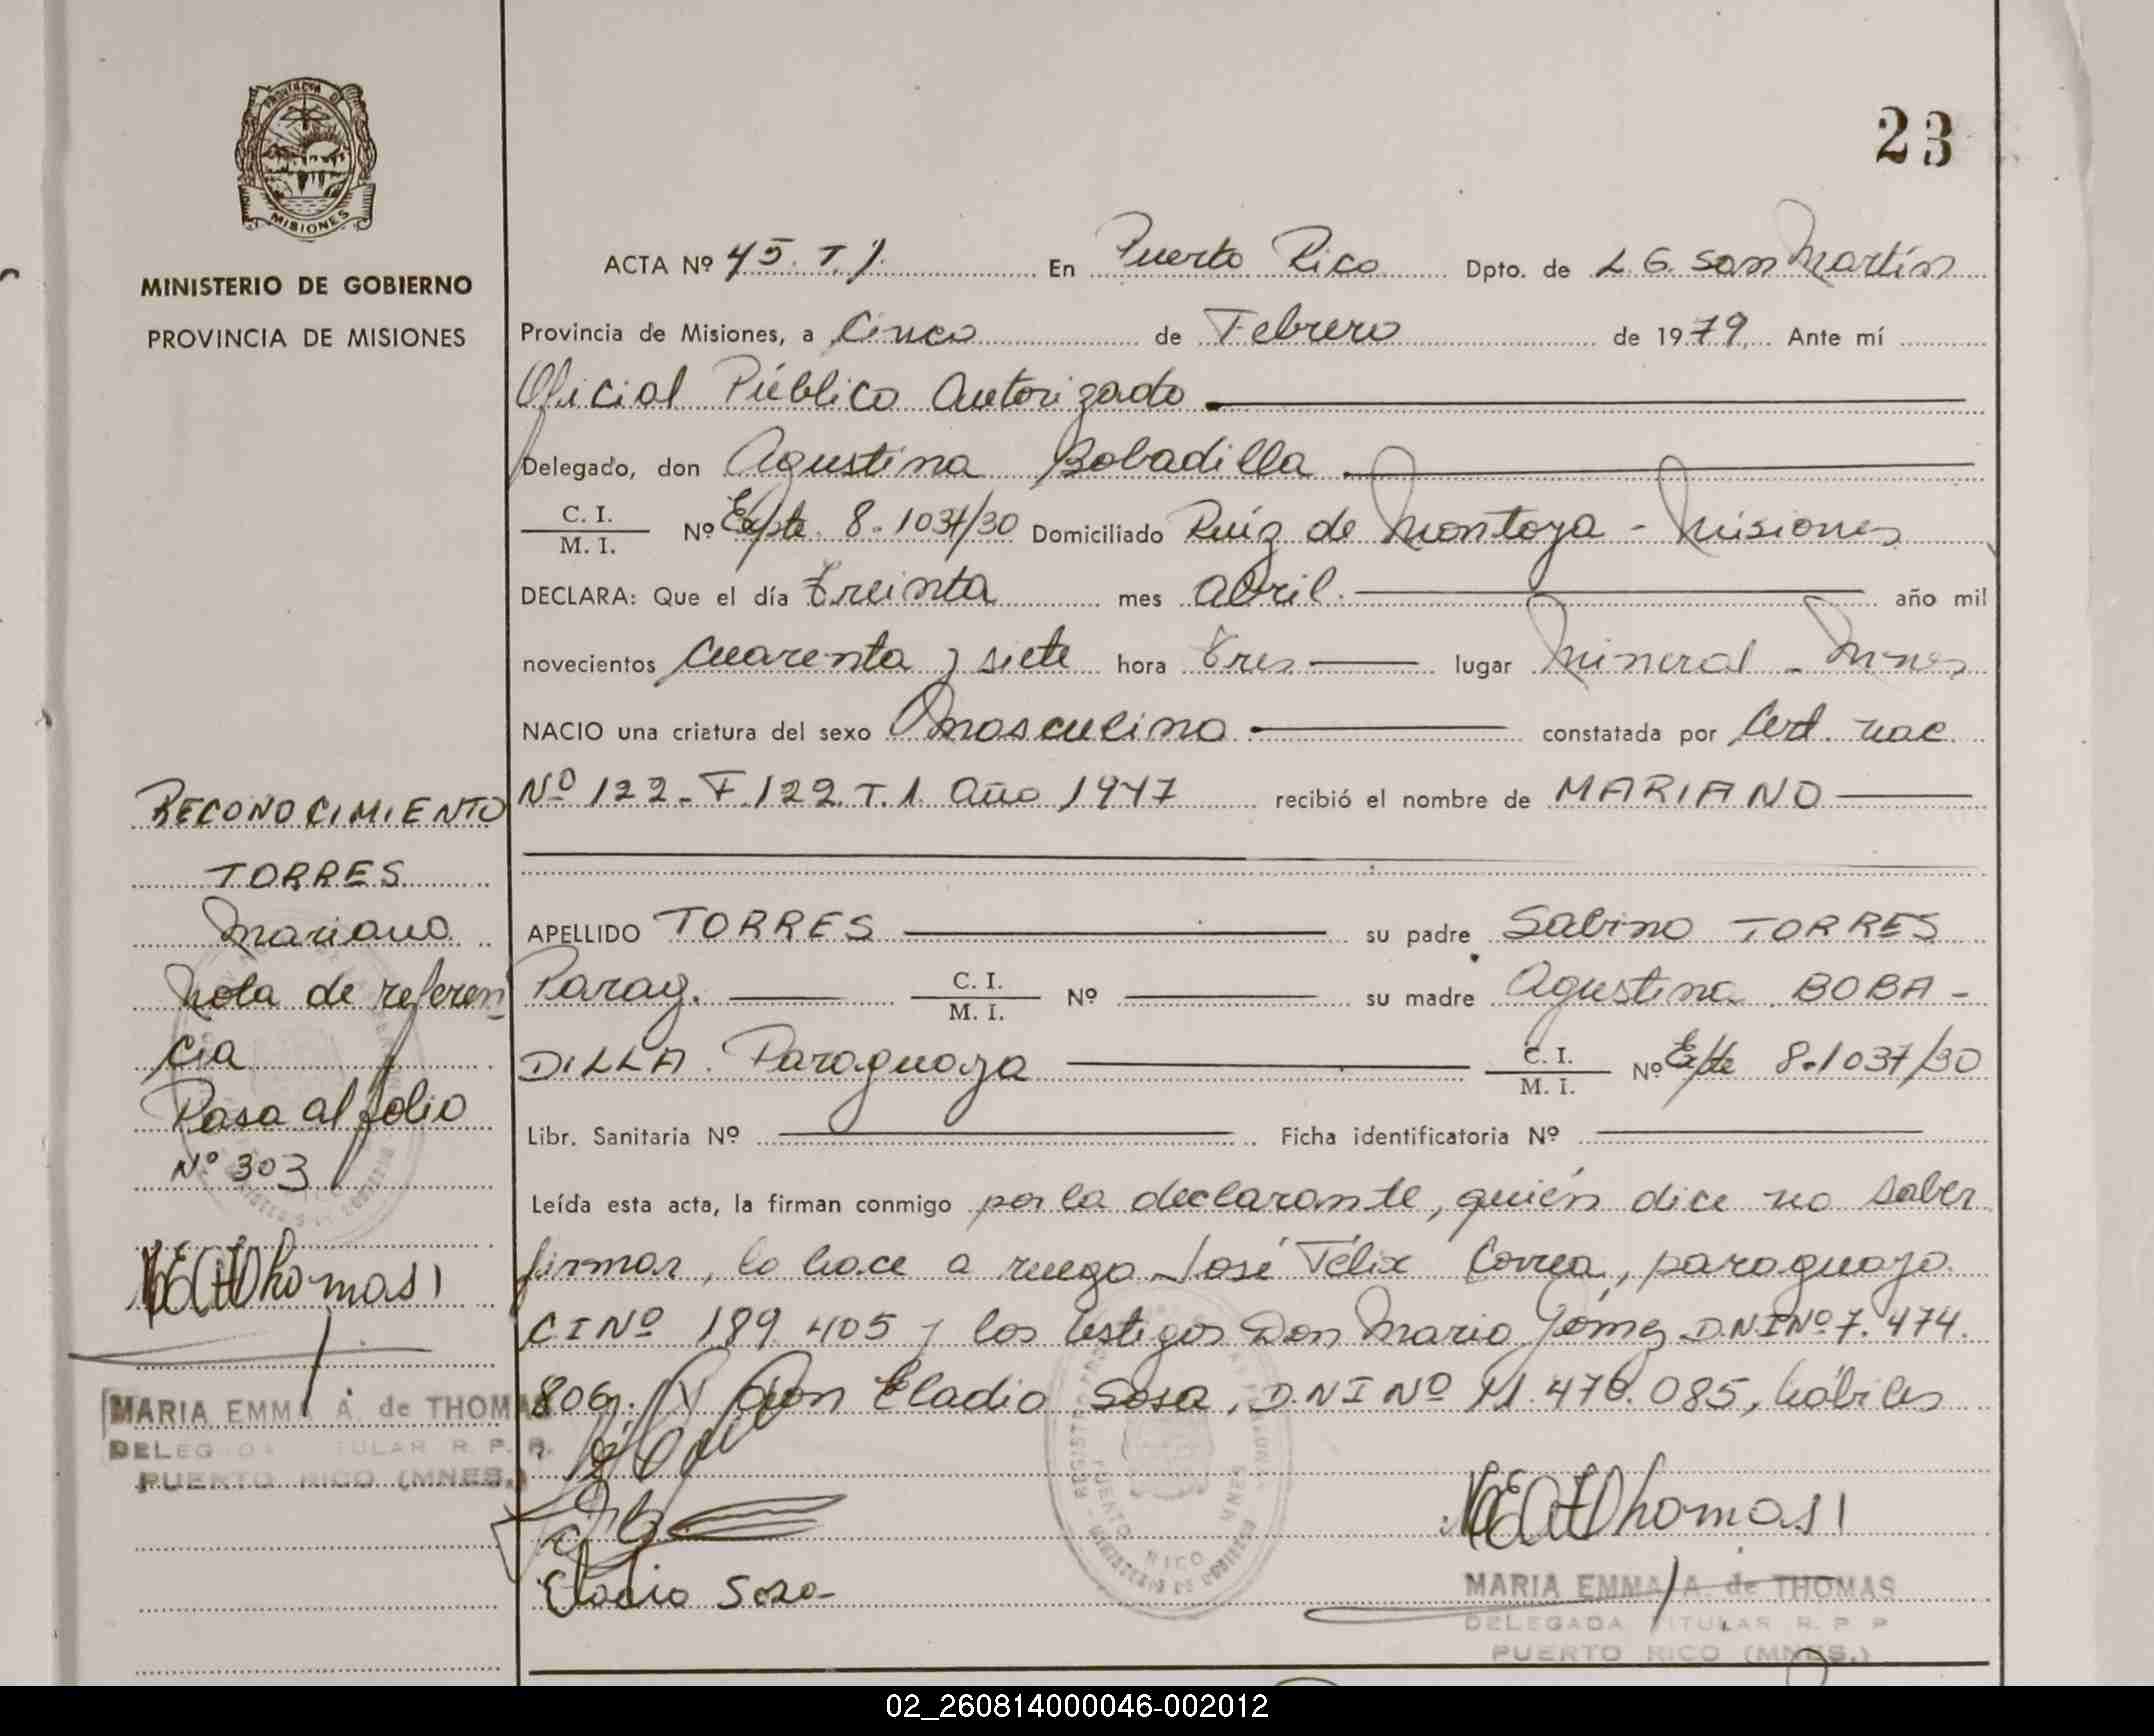 23
PROVINCIA DE
MISIONES
MINISTERIO DE GOBIERNO
PROVINCIA DE MISIONES
ACTA Nº 45. T. 1. En Puerto Rico Dpto. de L. G. San Martín
Provincia de Misiones, a Cinco de Febrero de 1979. Ante mí
Oficial Público Autorizado
Delegado, don Agustina Bobadilla
C. I.
M. I. Nº Expte. 8.1037/30 Domiciliado Ruíz de Montoya - Misiones
DECLARA: Que el día treinta mes abril. año mil
novecientos cuarenta y siete hora tres lugar Mineral - Mnes
NACIO una criatura del sexo masculino constatada por Cert. nac.
Nº 122 - F. 122. T. 1. Año 1947 recibió el nombre de MARIANO
APELLIDO TORRES su padre Sabino TORRES
Parag. C. I.
M. I. Nº su madre Agustina BOBA-
DILLA. Paraguaya C. I.
M. I. Nº Expte 8.1037/30
Libr. Sanitaria Nº Ficha identificatoria Nº
Leída esta acta, la firman conmigo por la declarante, quién dice no saber
firmar, lo hace a ruego José Félix Correa, paraguayo
C I Nº 189.405 y los testigos Don Mario Gómez D.N.I Nº 7.474.
806. y Don Eladio Sosa, D.N I Nº 11.476.085, hábiles
Eladio Sosa
MEAThomas
MARIA EMMA A. de THOMAS
DELEGADA TITULAR R. P. P
PUERTO RICO (MNES.)
RECONOCIMIENTO
TORRES
Mariano
Nota de referen
cia
Pasa al folio
Nº 303
MEAThomas
MARIA EMMA A. de THOMAS
DELEGADA TITULAR R. P. P.
PUERTO RICO (MNES.)
02_260814000046-002012